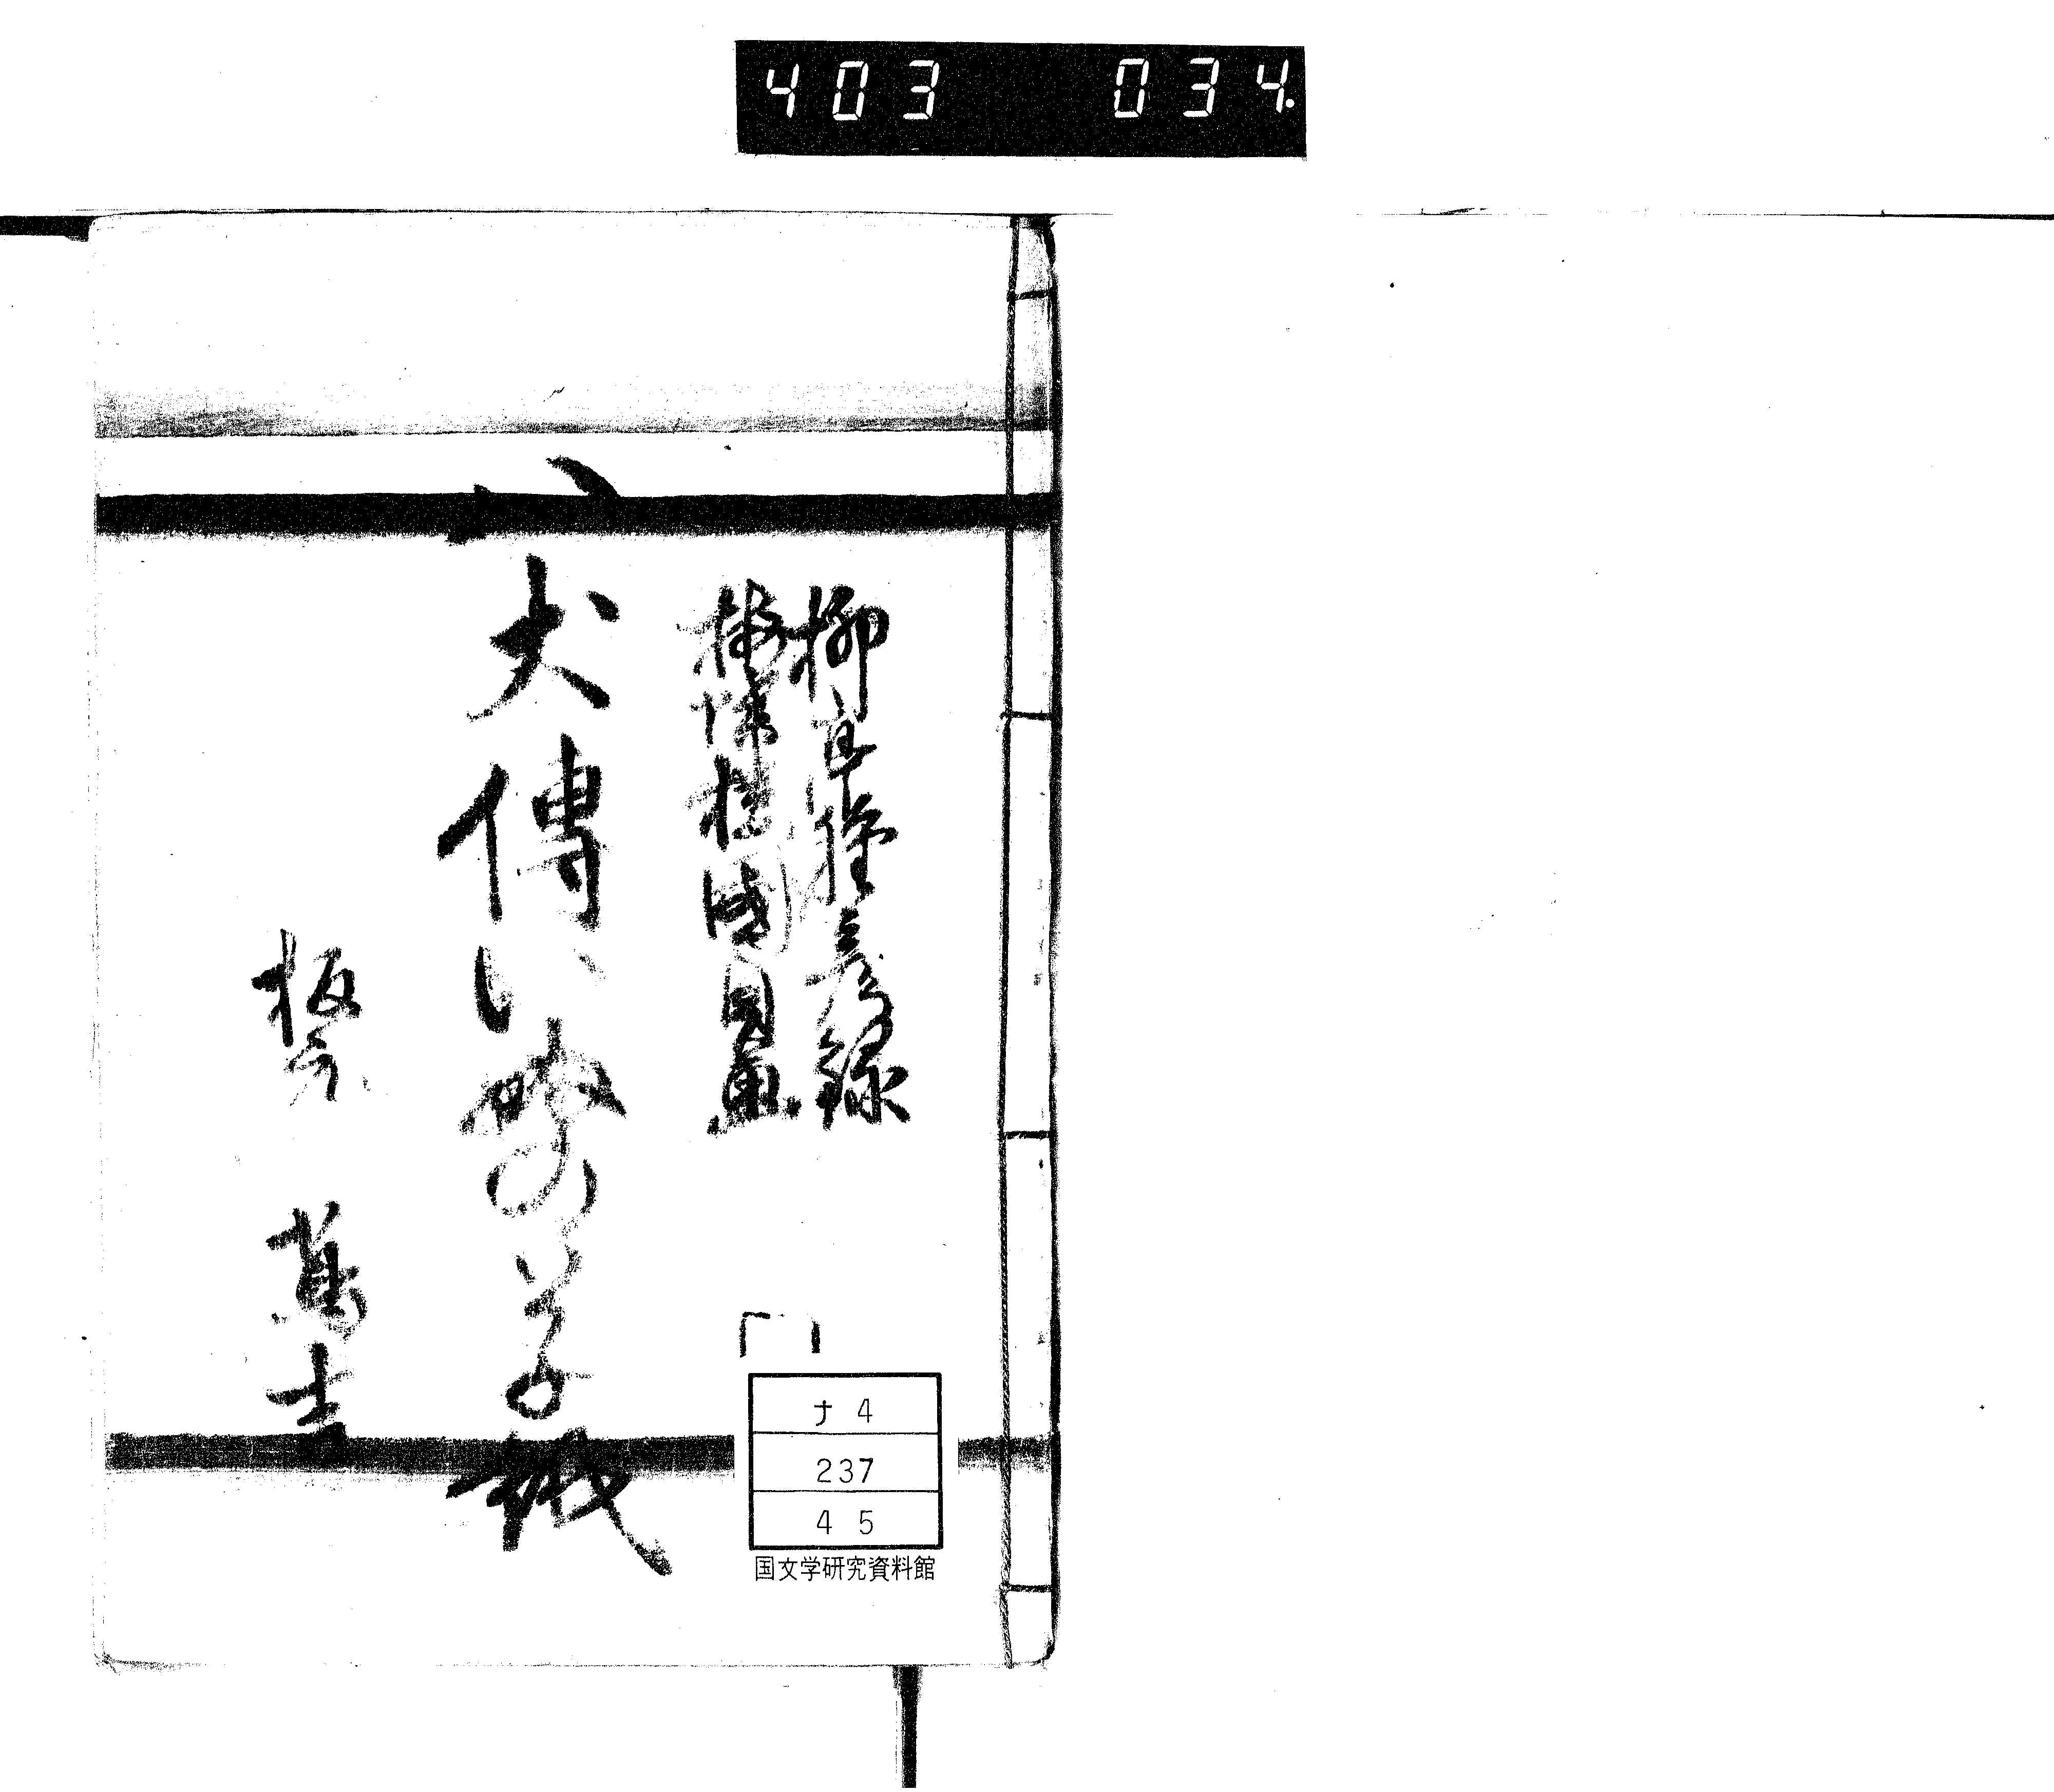 403 034.
柳亭種彦録
梅蝶楼國貞画
八犬傳犬の草紙
板元 蔦吉
ナ4
237
45
国文学研究資料館